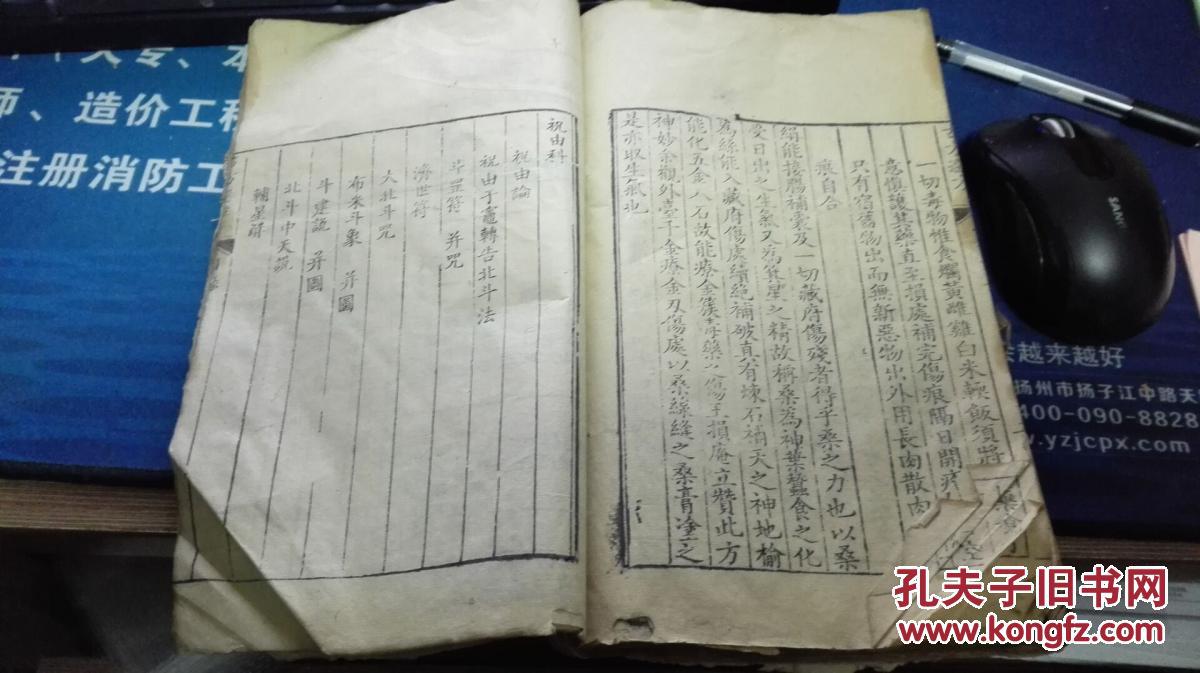 一切毒物惟食爛黃雌雞白米軟飯須將
意慎讓其藥直至損處補完傷痕隔日開
只有宿舊物出而無新惡物出外用長肉散肉
痕自合
絹能接腸補囊及一切藏府傷殘者得乎桑之力也以桑
受日出之生氣又為箕星之精故稱桑為神葉蠶食之化
為絲能入藏府傷處續絕補破真有煉石補天之神地榆
能化五金八石故能療金簇毒藥之傷手損庵立贊此方
神妙余觀外臺千金療金刃傷處以桑線縫之桑膏塗之
是亦取生氣也
祝由科
祝由論
祝由于竈轉告北斗法
斗罡符 并咒
濟世符
大北斗咒
布米斗象 并圖
斗建說 并圖
北斗中天說
輔星辯
大专、本
师、造价工程
注册消防工
越来越好
扬州市扬子江中路天
400-090-8828
yzjcpx.com
孔夫子旧书网
www.kongfz.com